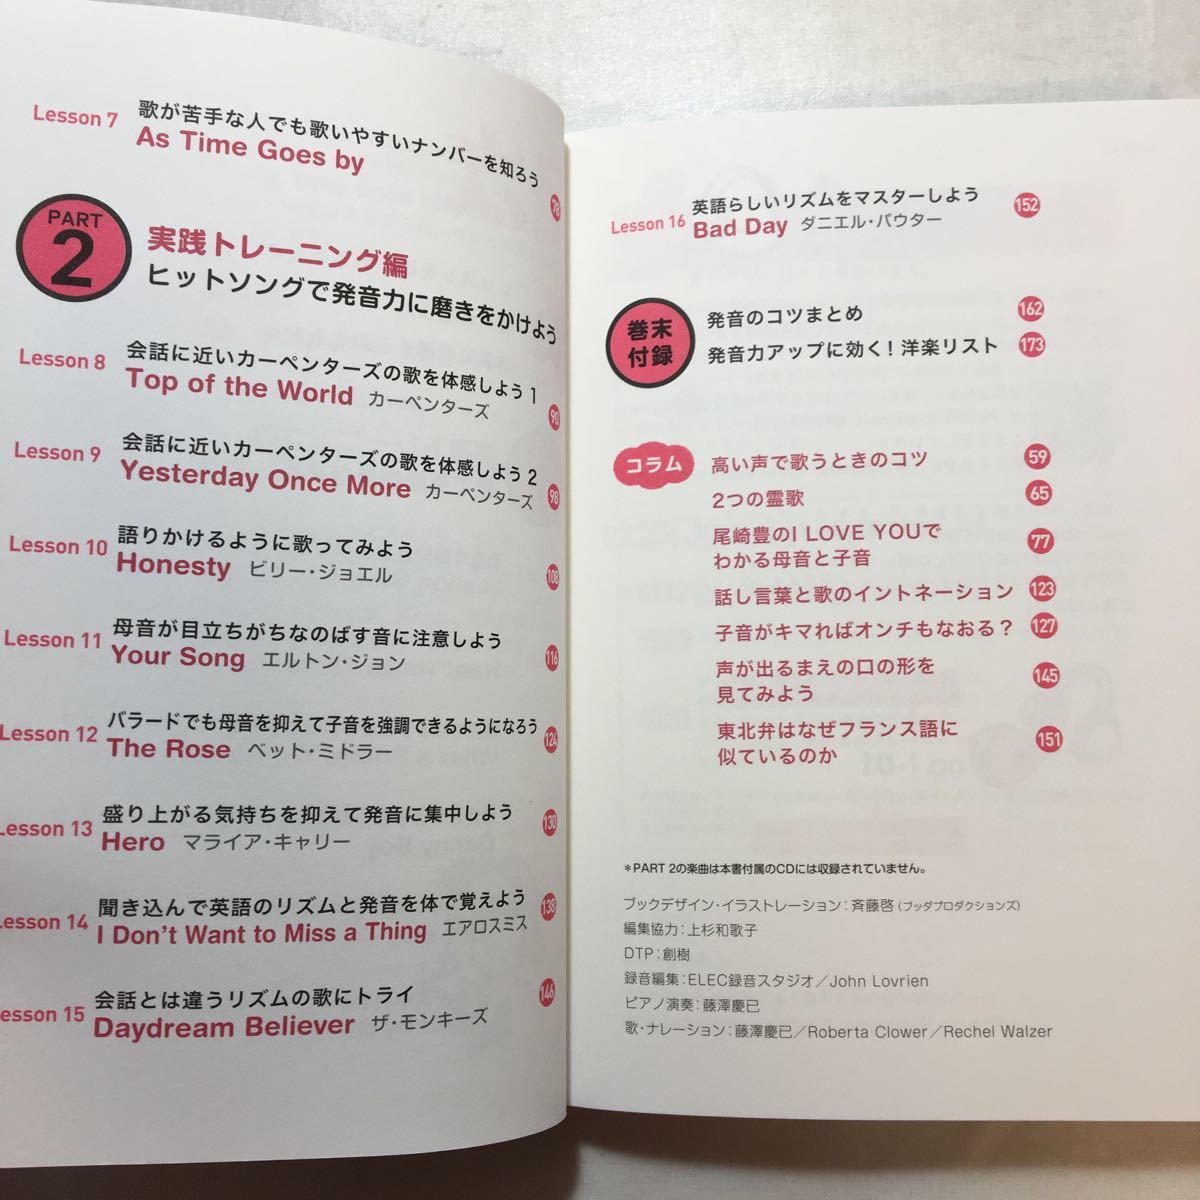 Lesson 7
歌が苦手な人でも歌いやすいナンバーを知ろう
As Time Goes by
78
PART
2
実践トレーニング編
ヒットソングで発音力に磨きをかけよう
Lesson 8
会話に近いカーペンターズの歌を体感しよう 1
Top of the World カーペンターズ
90
Lesson 9
会話に近いカーペンターズの歌を体感しよう 2
Yesterday Once More カーペンターズ
98
Lesson 10
語りかけるように歌ってみよう
Honesty ビリー・ジョエル
108
Lesson 11
母音が目立ちがちなのばす音に注意しよう
Your Song エルトン・ジョン
116
Lesson 12
バラードでも母音を抑えて子音を強調できるようになろう
The Rose ベット・ミドラー
124
Lesson 13
盛り上がる気持ちを抑えて発音に集中しよう
Hero マライア・キャリー
130
Lesson 14
聞き込んで英語のリズムと発音を体で覚えよう
I Don't Want to Miss a Thing エアロスミス
138
esson 15
会話とは違うリズムの歌にトライ
Daydream Believer ザ・モンキーズ
146
Lesson 16
英語らしいリズムをマスターしよう
Bad Day ダニエル・パウター
152
巻末
付録
発音のコツまとめ 162
発音力アップに効く！洋楽リスト 173
コラム
高い声で歌うときのコツ 59
2つの霊歌 65
尾崎豊のI LOVE YOUで
わかる母音と子音 77
話し言葉と歌のイントネーション 123
子音がキマればオンチもなおる？ 127
声が出るまえの口の形を
見てみよう 145
東北弁はなぜフランス語に
似ているのか 151
＊PART 2の楽曲は本書付属のCDには収録されていません。
ブックデザイン・イラストレーション：斉藤啓（ブッダプロダクションズ）
編集協力：上杉和歌子
DTP：創樹
録音編集：ELEC録音スタジオ／John Lovrien
ピアノ演奏：藤澤慶已
歌・ナレーション：藤澤慶已／Roberta Clower／Rechel Walzer